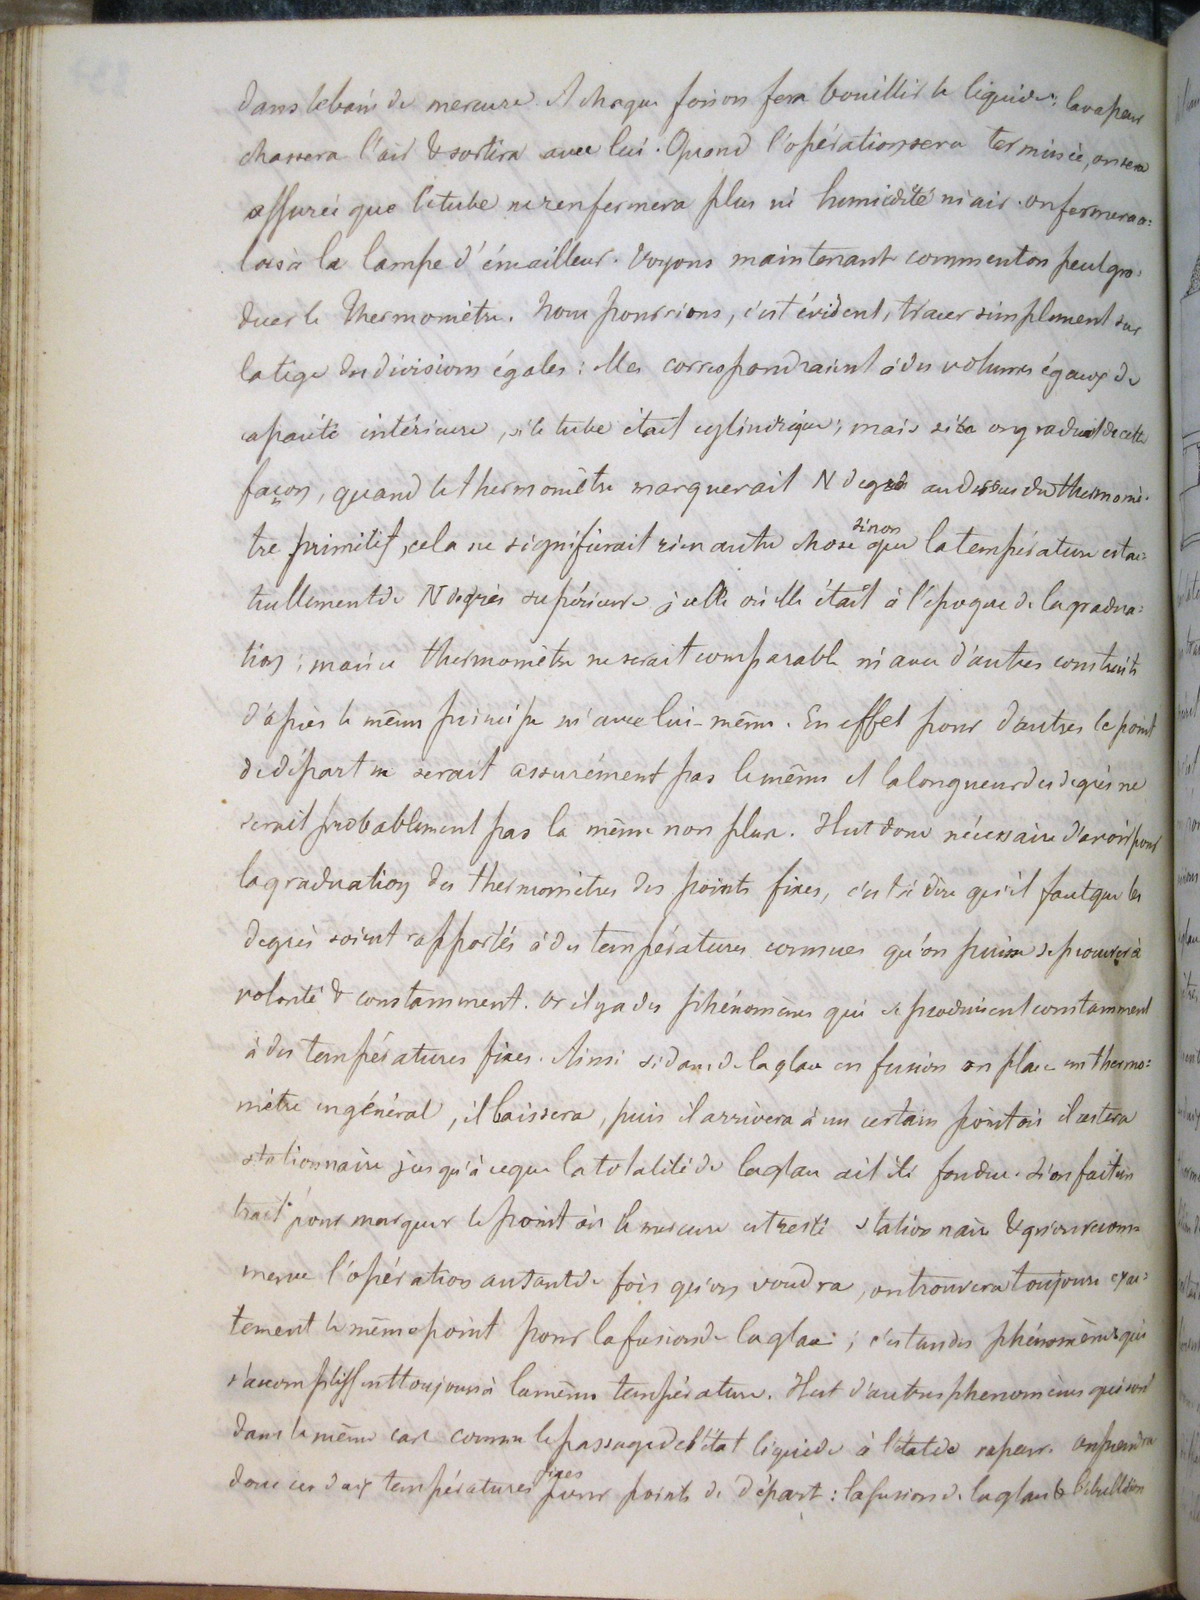 dans le bain de mercure. A chaque fois on fera bouillir le liquide; la vapeur
chassera l'air & sortira avec lui. Quand l'opération sera terminée, on sera
assuré que le tube ne renfermera plus ni humidité ni air. on fermera a-
lors à la lampe d'émailleur. Voyons maintenant comment on peut gra-
duer le thermomètre. Nous pourrions, c'est évident, tracer simplement sur
la tige des divisions égales: elles correspondraient à des volumes égaux de
capacité intérieure, si le tube était cylindrique; mais si on graduait de cette
façon, quand le thermomètre marquerait N degrés au dessus du thermomè-
tre primitif, cela ne signifierait rien autre chose sinon que la température est ac-
tuellement de N degrés supérieure à celle où elle était à l'époque de la gradua-
tion; mais ce thermomètre ne serait comparable ni avec d'autres construits
d'après le même principe ni avec lui-même. En effet pour d'autres le point
de départ ne serait assurément pas le même et la longueur des degrés ne
serait probablement pas la même non plus. Il est donc nécessaire d'avoir pour
la graduation des thermomètres des points fixes, c'est à dire qu'il faut que les
degrés soient rapportés à des températures connues qu'on puisse se procurer à
volonté & constamment. Or il y a des phénomènes qui se produisent constamment
à des températures fixes. Ainsi si dans de la glace en fusion on place un thermo-
mètre en général, il baissera, puis il arrivera à un certain point où il restera
stationnaire jusqu'à ce que la totalité de la glace ait été fondue. Si on fait un
trait pour marquer le point où le mercure est resté stationnaire & qu'on recom-
mence l'opération autant de fois qu'on voudra, on trouvera toujours exac-
tement le même point pour la fusion de la glace; c'est un des phénomènes qui
s'accomplissent toujours à la même température. Il est d'autres phenomènes qui sont
dans le même cas comme le passage de l'état liquide à l'état de vapeur. on prendra
donc ces deux températures fixes pour points de départ: la fusion de la glace & l'ébullition